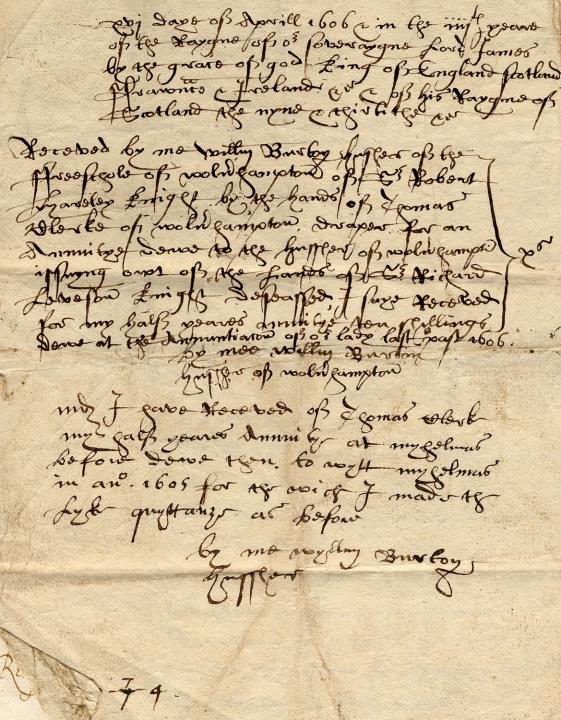 xvj daye off Aprill 1606 & in the iiijth yeare
off the Raygne off or soveraygne Lord James
by the grace of god King off England Scotland
ffraunce & Ireland &c & off his Raygne off
Scotland the nyne & thirtithe &c
Receved by me Willm Burton hussher off the
ffreeschole off wolverhampton off Sr Robert
Knight by the hands off Thomas
Clerke off wolverhampton draper for an
Annuitye dewe to the hussher off wolverhampton
issuing owt off the Lands off Sr Richard
Leveson Knight deseassed I saye Receved
for my halff yeares annuitye ten shillings
dewe at the Annuntiation off or lady last past 1606.
xs
by mee Willm Burton
hussher off wolverhampton
mdz I have Receved off Thomas Clerk
my halff yeares Annuitye at myhelmas
before dewe then, to wytt myhelmas
in ano. 1605 for the wich I made the
Lyke quyttanze as before
by me wyllm Burton
hussher
4